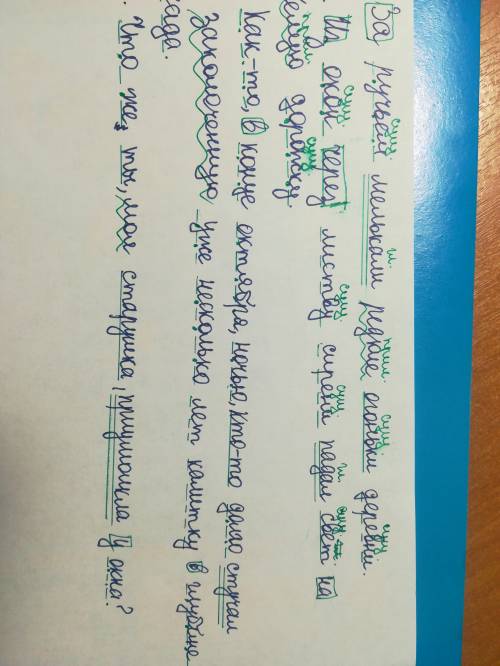 сущ. гл. прил. сущ. сущ.
За ручьём мелькали редкие огоньки деревни.
сущ. сущ. сущ. гл. сущ.
Из окон через листву сирени падал свет на
прил. сущ.
дорожку.
Как-то, в конце октября, ночью, кто-то долго стучал
заколоченную уже несколько лет калитку в глубине
сада.
Что же, ты, моя старушка, приумолкла у окна?